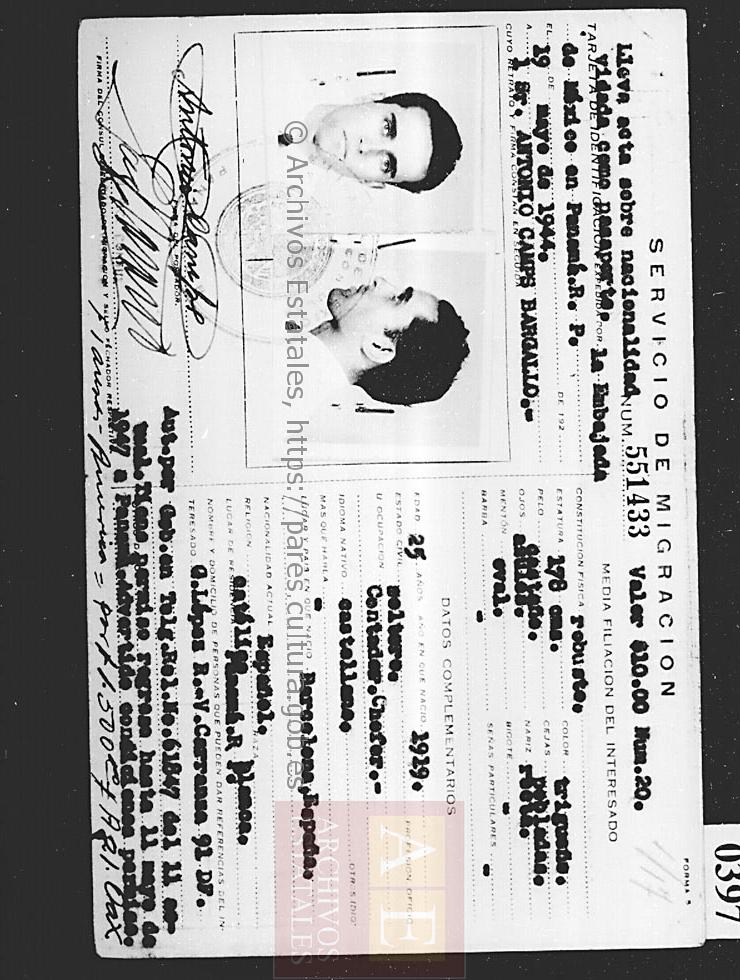 FORMA 5
0397
SERVICIO DE MIGRACION
NUM. 551433 Valor $10.00 Num.20.
Lleva acta sobre nacionalidad
TARJETA DE IDENTIFICACION EXPEDIDA POR
vidada como pasaporte. la Embajada
de México en Panamá.R. P.
DE 192
EL 19 DE mayo de 1944.
A l Sr. ANTONIO CAMPS BARGALLO.-
CUYO RETRATO Y FIRMA CONSTAN EN SEGUIDA
Antonio Camps
FIRMA DEL PORTADOR.
MEDIA FILIACION DEL INTERESADO
CONSTITUCION FISICA robusto. COLOR trigueño.
ESTATURA 178 cms. CEJAS pobladas.
PELO castaño. NARIZ recta.
OJOS
MENTON oval. BIGOTE -
BARBA - SEÑAS PARTICULARES -
DATOS COMPLEMENTARIOS
EDAD 25 AÑOS AÑO EN QUE NACIO 1919.
ESTADO CIVIL soltero. PROFESION, OFICIO
U OCUPACION Contador.Chofer.-
IDIOMA NATIVO castellano. OTROS IDIO-
MAS QUE HABLA -
LUGAR Y PAIS EN QUE NACIO Barcelona,España.
NACIONALIDAD ACTUAL Español. RAZA blanca.
RELIGION católica
LUGAR DE RESIDENCIA Panamá.R P.
NOMBRE Y DOMICILIO DE PERSONAS QUE PUEDEN DAR REFERENCIAS DEL IN-
TERESADO G.López R.-V.Carranza 91 DF.
Aut.por Gob.en Telg.Rel.No.61847 del 11 ac-
tual.Tiene permiso regresa hasta 11 mayo de
1947 a Panamá.Advertido condiciones permiso.
© Archivos Estatales, https://pares.cultura.gob.es
AE
ARCHIVOS
ESTATALES